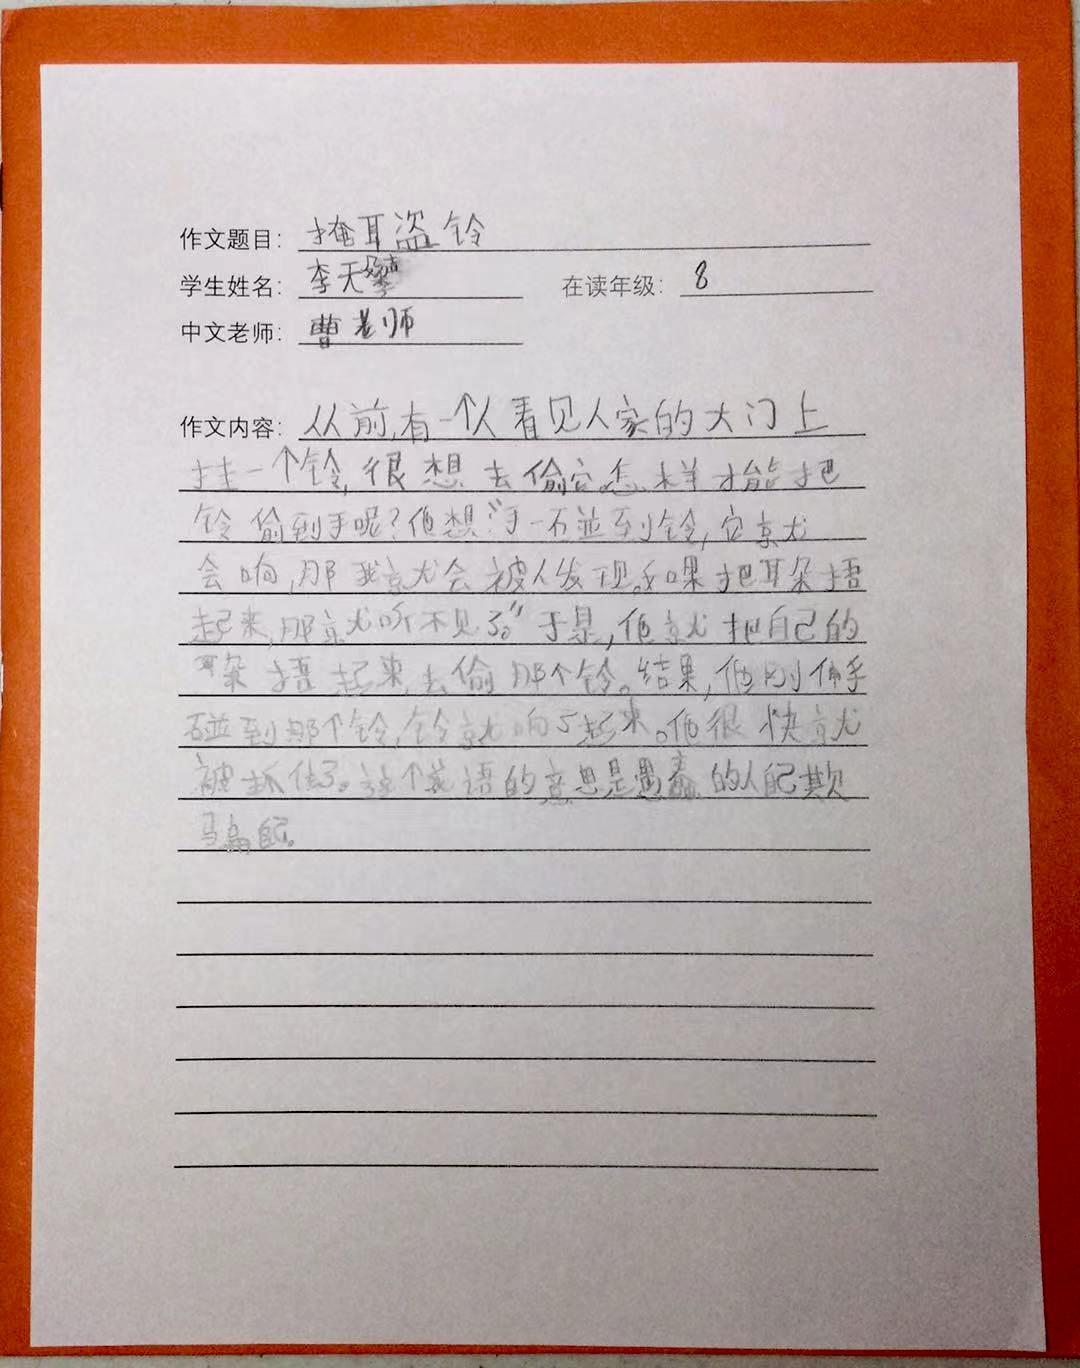 作文题目: 掩耳盗铃
学生姓名: 李天
在读年级: 8
中文老师: 曹老师
作文内容: 从前,有一个人看见人家的大门上
挂一个铃,很想去偷它。怎样才能把
铃偷到手呢?他想:“手一碰到铃,它就
会响,那我就会被人发现。如果把耳朵捂
起来,那就听不见了。”于是,他就把自己的
耳朵捂起来,去偷那个铃。结果,他刚伸手
碰到那个铃,铃就响了起来。他很快就
被抓住了。这个成语的意思是愚蠢的人自己欺
骗自己。